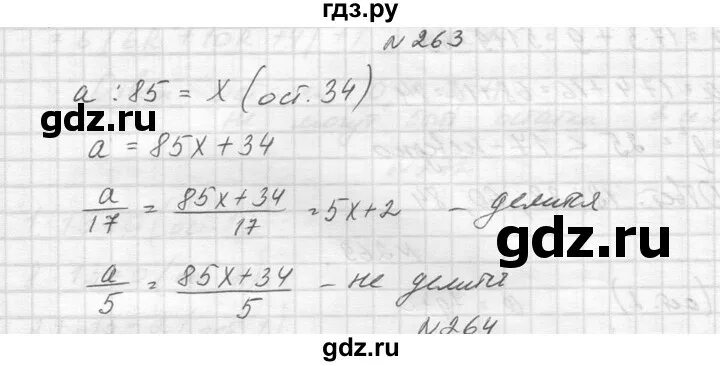 гдз.ру
N 263
a : 85 = x (ост. 34)
a = 85x + 34
a/17 = (85x + 34)/17 = 5x + 2 – делится
a/5 = (85x + 34)/5 – не делится
N 264
gdz.ru
gdz.ru
gdz.ru
gdz.ru
gdz.ru